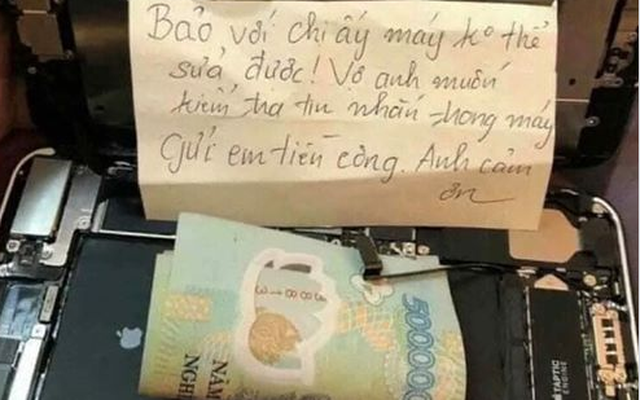 Bảo với chị ấy máy ko thể
sửa được! Vợ anh muốn
kiểm tra tin nhắn trong máy
Gửi em tiền công. Anh cảm
ơn
500000
NĂM
NGH
TAPTIC
ENGINE